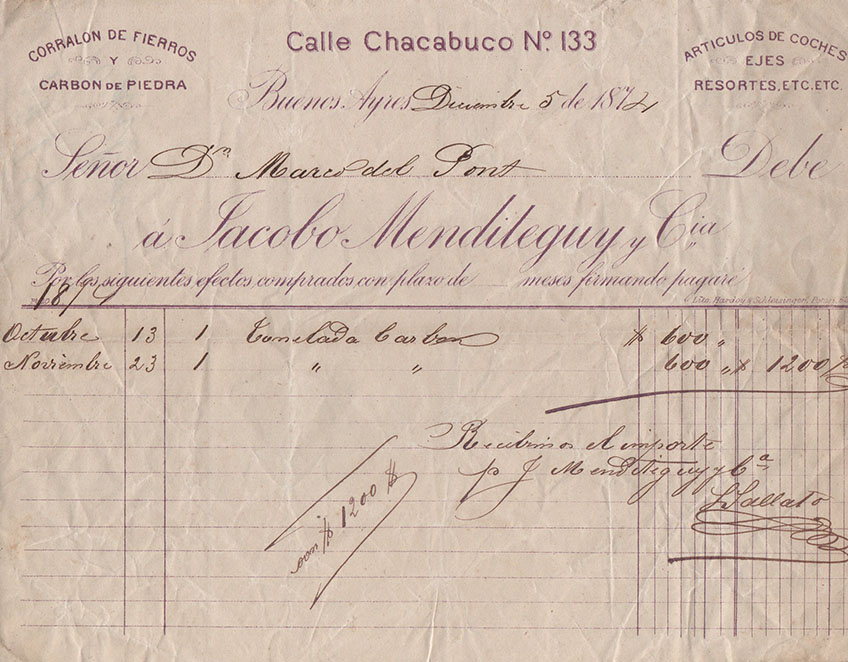 CORRALON DE FIERROS
Y
CARBON DE PIEDRA
Calle Chacabuco Nº 133
ARTICULOS DE COCHES
EJES
RESORTES, ETC. ETC.
Buenos Ayres Diciembre 5 de 1874
Señor Dn Marco del Pont Debe
á Jacobo Menditeguy y Cia
Por los siguientes efectos comprados con plazo de meses firmando pagaré
1874
Octubre 13 1 Tonelada Carbon $ 600 "
Noviembre 23 1 " " 600 " $ 1200
Recibimos el importe
p J Menditeguy y Ca
son $ 1200 $